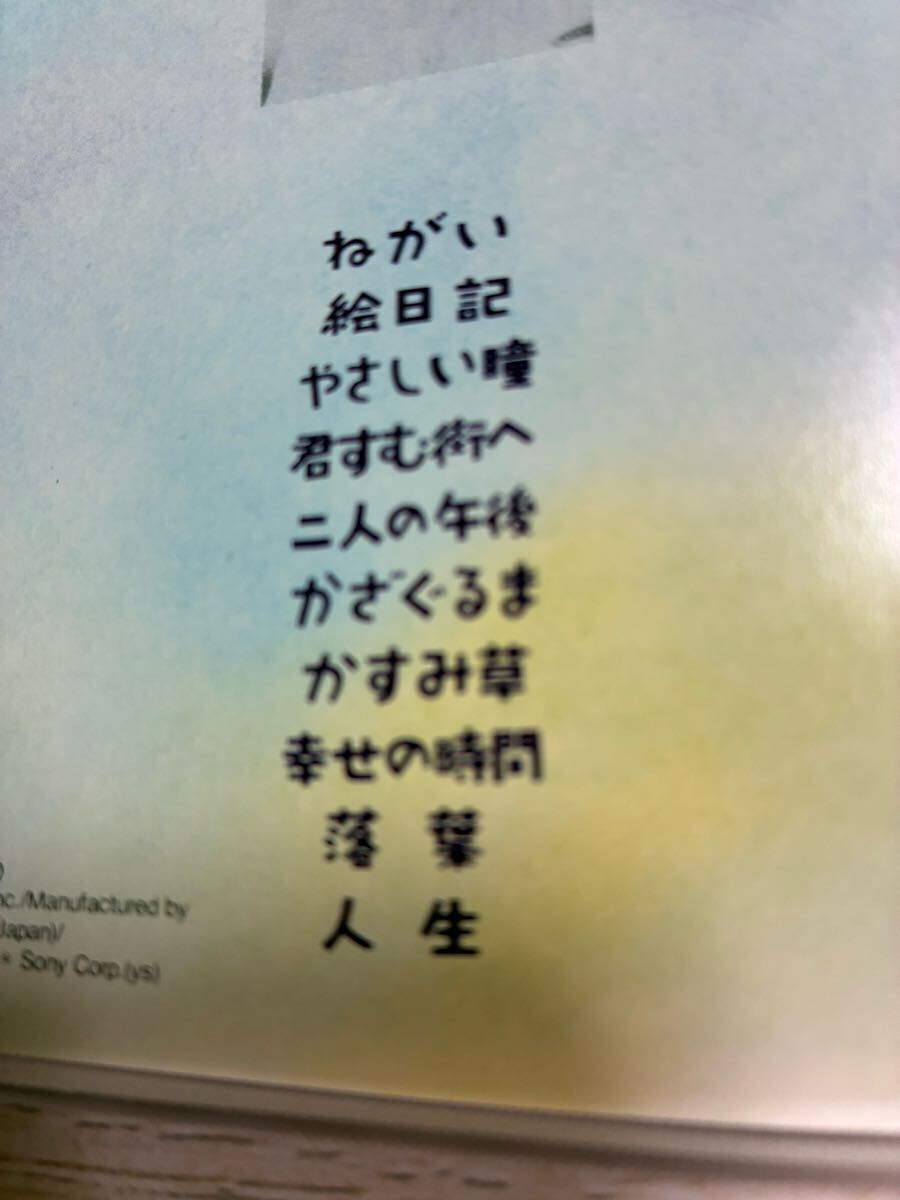 ねがい
絵日記
やさしい瞳
君すむ街へ
二人の午後
かざぐるま
かすみ草
幸せの時間
落葉
人生
)
nc./Manufactured by
Japan)/
* Sony Corp.(ys)